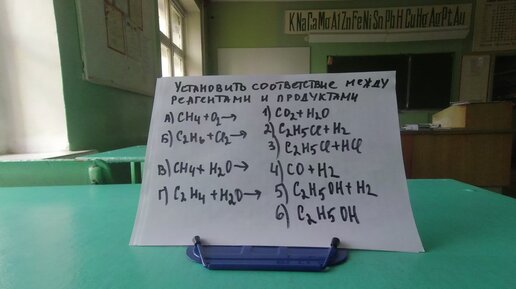 K Na Ca Mg Al Zn Fe Ni Sn Pb H Cu Hg Ag Pt Au
УСТАНОВИТЬ СООТВЕТСТВИЕ МЕЖДУ
РЕАГЕНТАМИ И ПРОДУКТАМИ
А) CH4 + O2 →
Б) C2H6 + Cl2 →
В) CH4 + H2O →
Г) C2H4 + H2O →
1) CO2 + H2O
2) C2H5Cl + H2
3) C2H5Cl + HCl
4) CO + H2
5) C2H5OH + H2
6) C2H5OH